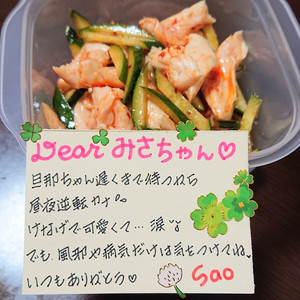 Dear みさちゃん♡
旦那ちゃん遅くまで待つから
昼夜逆転カナ
けなげで可愛くて…涙
でも、風邪や病気だけは気をつけてね。
いつもありがとう♡
Sao